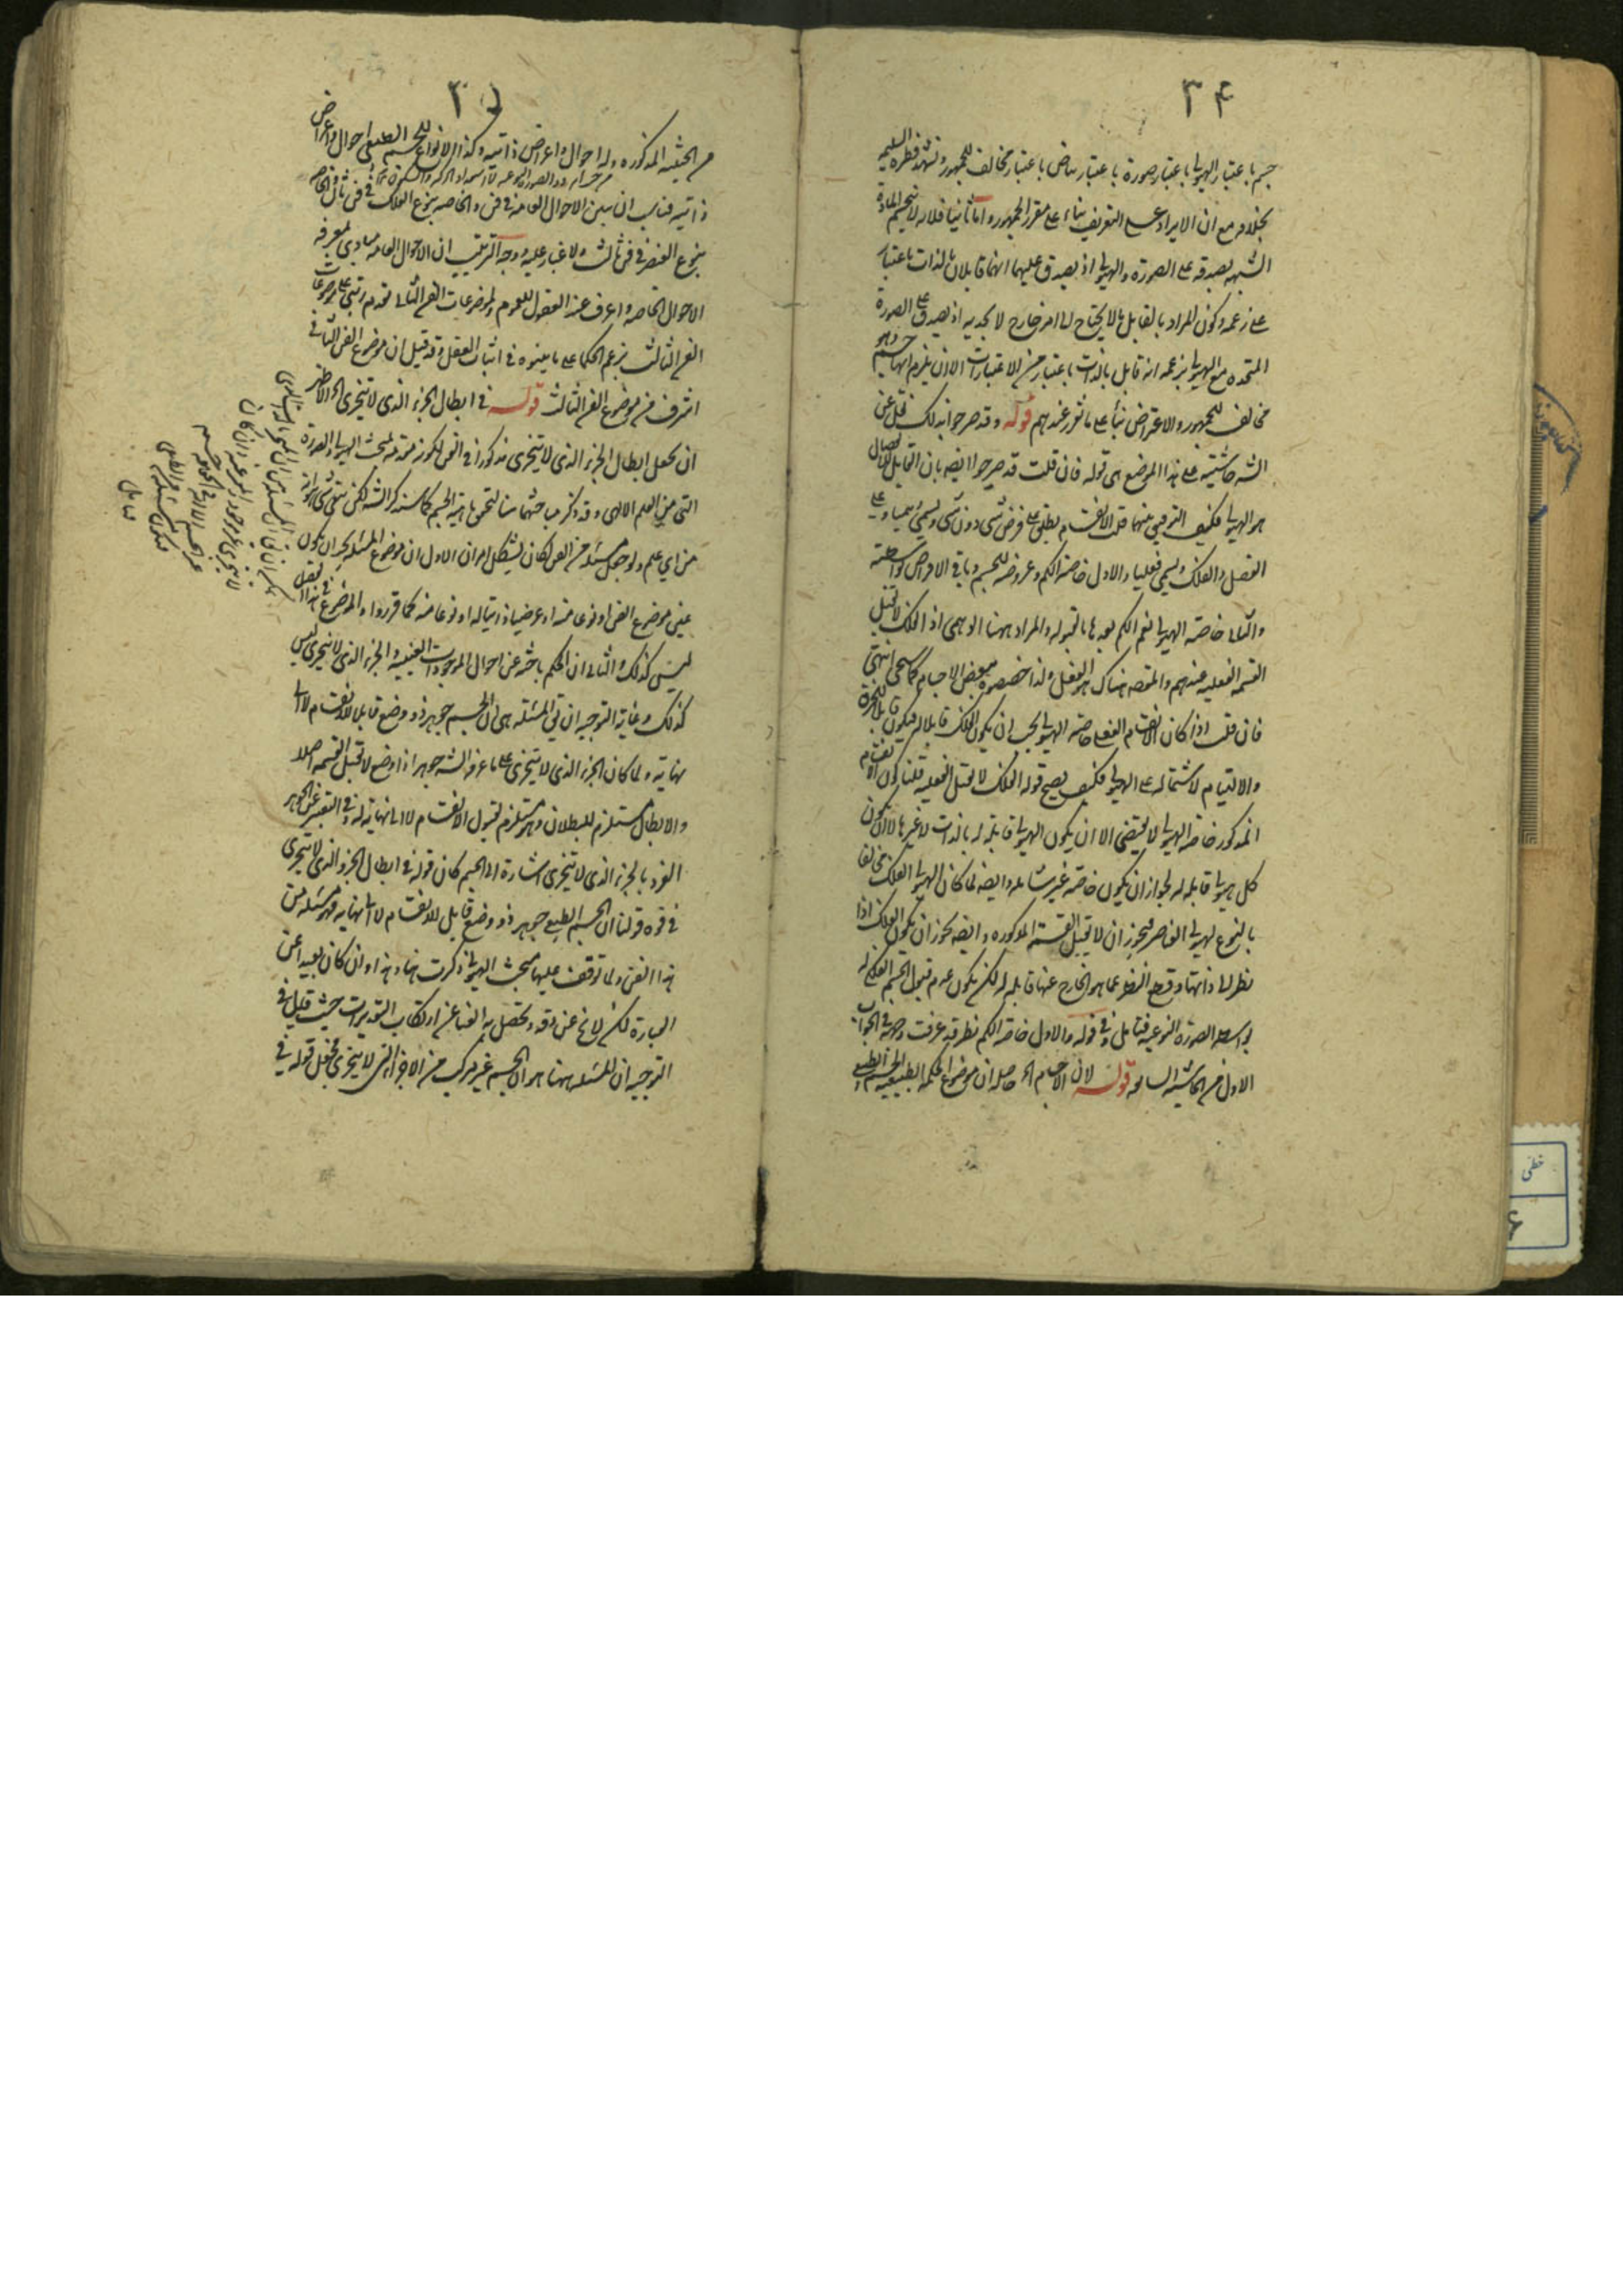 ٣۴
جسم باعتبار الهيولى باعتبار صورة باعتبار بياض باعتبار مخالف للجمهور وتشهد فطرة السليمه
بخلافه مع ان الايراد على التعريف بناء على مقرر الجمهور واما ثانيا فلانه لا
الشبهه بصدقه على الصورة والهيولى اذ يصدق عليهما انهما قابلان بالذات باعتبار
على زعمه وكون المراد بالقابل ما لا يحتاج الى امر خارج لا يجديه اذ يصدق على الصورة
المتحدة مع الهيولى بزعمه انه قابل بالذات باعتبار من الاعتبارات الا ان يلتزم انها جسم وهو
مخالف للجمهور والاعتراض بناء على ما تقرر عندهم قوله وقد صرحوا بذلك نقل عن
الشه حاشيته على هذا الموضع هى قوله فان قلت قد صرحوا ايضه بان القابل للانفصال
هو الهيولى فكيف التوفيق بينهما قلت الانقسام يطلق على فرض شى دون شى ويسمى وهميا وعلى
الفصل والفك ويسمى فعليا والاول خاصة الكم وعروضه للجسم وباقى الاعراض بواسطته
والثانى خاصة الهيولى نعم الكم يعدها لقبوله والمراد ههنا الوهمى اذ الفلك لا تقبل
القسمة الفعليه عندهم والمقصه هناك هو الفعلى ولذا خصصوه ببعض الاجسام كما سيجى انتهى
فان قلت اذا كان الانقسام الفعلى خاصة الهيولى يجب ان يكون الفلك قابلا له فيكون قابلا للخرق
والالتيام لاشتماله على الهيولى فكيف يصح قوله الفلك لا تقبل الفعليه قلنا كون الانقسام
المذكور خاصة الهيولى لا يقتضى الا ان يكون الهيولى قابلة له بالذات لا غيرها لا ان يكون
كل هيولى قابله له لجواز ان يكون خاصة غير شامله وايضه لما كان الهيولى الفلك مخالفا
بالنوع لهيولى العناصر فيجوز ان لا تقبل القسمة المذكوره وايضه يجوز ان يكون الفلك اذا
نظر الى ذاتها وقطع النظر عما هو الخارج عنها قابله له لكن يكون عدم قبول الجسم الفلكى له
بواسطه الصورة النوعيه فتامل وفى قوله والاول خاصة الكم نظر قد عرفت وجهه فى الجواب
الاول من الحاشيه السابقه قوله لان الاجسام اه حاصله ان موضوع الحكمه الطبيعيه الجسم الطبيعى
٣٥
من الحيثيه المذكوره وله احوال واعراض ذاتيه وكذا لانواع الجسم الطبيعى احوال واعراض
ذاتيه فناسب ان يبين الاحوال العامه فى فن والخاصه بنوع الفلك فى فن ثان والخاصه
بنوع العنصر فى فن ثالث ولا غبار عليه ووجه الترتيب ان الاحوال العامه مبادى لمعرفه
الاحوال الخاصه واعرف عند العقول للعموم ولموضوعات الفن الثانى تقدم رتبى على موضوعات
الفن الثالث بزعم الحكما على ما بينوه فى اثبات العقل وقد قيل ان موضوع الفن الثانى
اشرف من موضوع الفن الثالث قوله فى ابطال الجزء الذى لا يتجزى اه الاظهر
ان يجعل ابطال الجزء الذى لا يتجزى مذكورا فى الفن لكونه مقدمه لبحث الهيولى والصورة
التى من العلم الالهى وقد ذكر مباحثهما هنا لتحقق ماهية الجسم كما سيذكره الشه لكن بقى شى هو انه
من اى علم ولو جعل مسئلة من الفن لكان يشكل امران الاول ان موضوع المسئله يجب ان يكون
عين موضوع الفن او نوعا منه او عرضيا ذاتيا له او نوعا منه كما قرروا والموضوع فى هذا الفصل
ليس كذلك والثانى ان الحكم باحثه عن احوال الموجودات العينيه والجزء الذى لا يتجزى ليس
كذلك وغاية التوجيه ان يق المسئله هى ان الجسم جوهر ذو وضع قابل للانقسام لا الى
نهاية ولما كان الجزء الذى لا يتجزى على ما عرفه الشه جوهرا ذا وضع لا تقبل القسمه اصلا
والابطال مستلزم للبطلان وهو مستلزم لقبول الانقسام لا الى نهاية له وفى التعبير عن الجوهر
الفرد بالجزء الذى لا يتجزى اشارة الى الجسم كان قوله فى ابطال الجزء الذى لا يتجزى
فى قوه قولنا ان الجسم الطبيعى جوهر ذو وضع قابل للانقسام لا الى نهايه فهو مسئلة من
هذا الفن ولما توقف عليها مبحث الهيولى ذكرت هنا وهذا وان كان بعيدا عن
العبارة لكن لا يخ عن دقه ويحصل به الغنا عن ارتكاب التقديرات حيث قيل فى
التوجيه ان المسئله ههنا هو ان الجسم غير مركب من الاجزاء التى لا يتجزى فجعل قوله فى